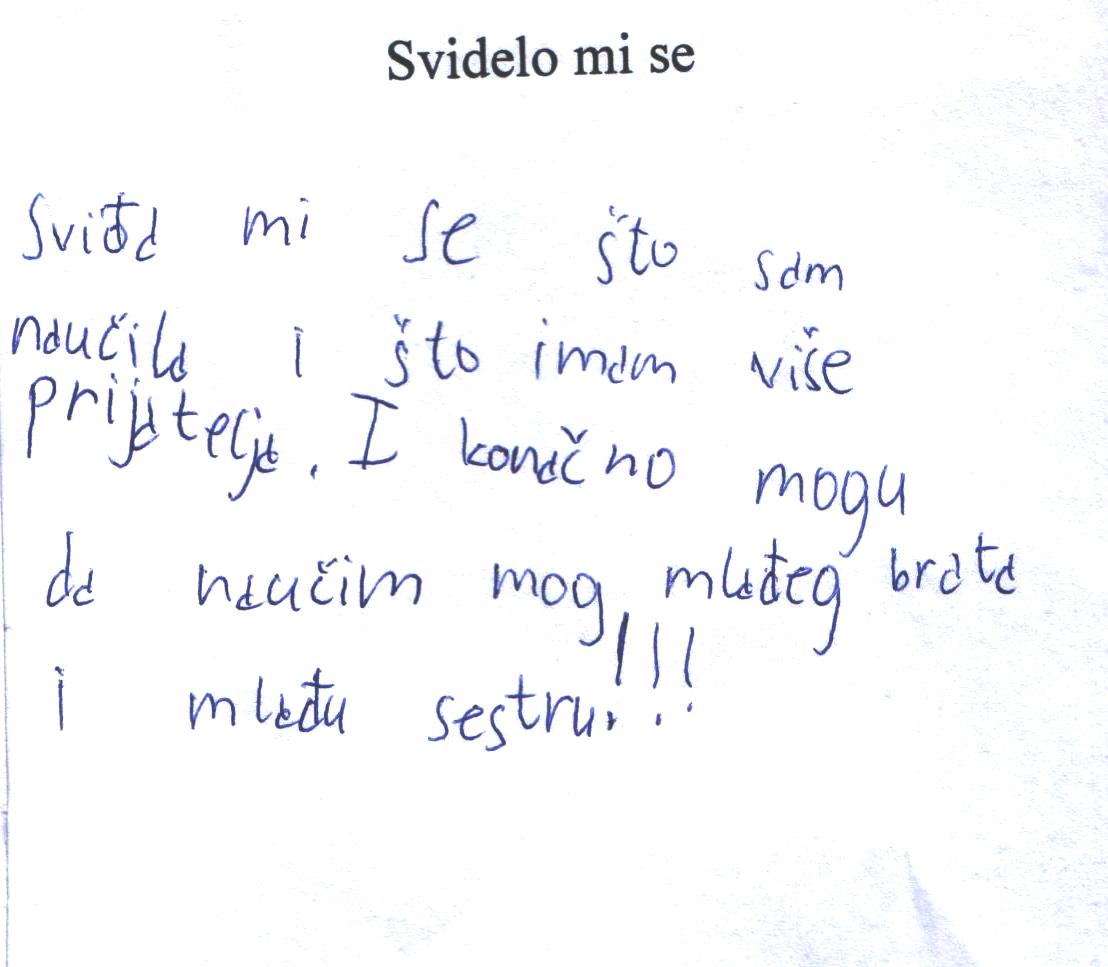 Svidelo mi se
Sviđa mi se što sam
naučila i što imam više
prijatelja. I konačno mogu
da naučim mog mlađeg brata
i mlađu sestru!!!